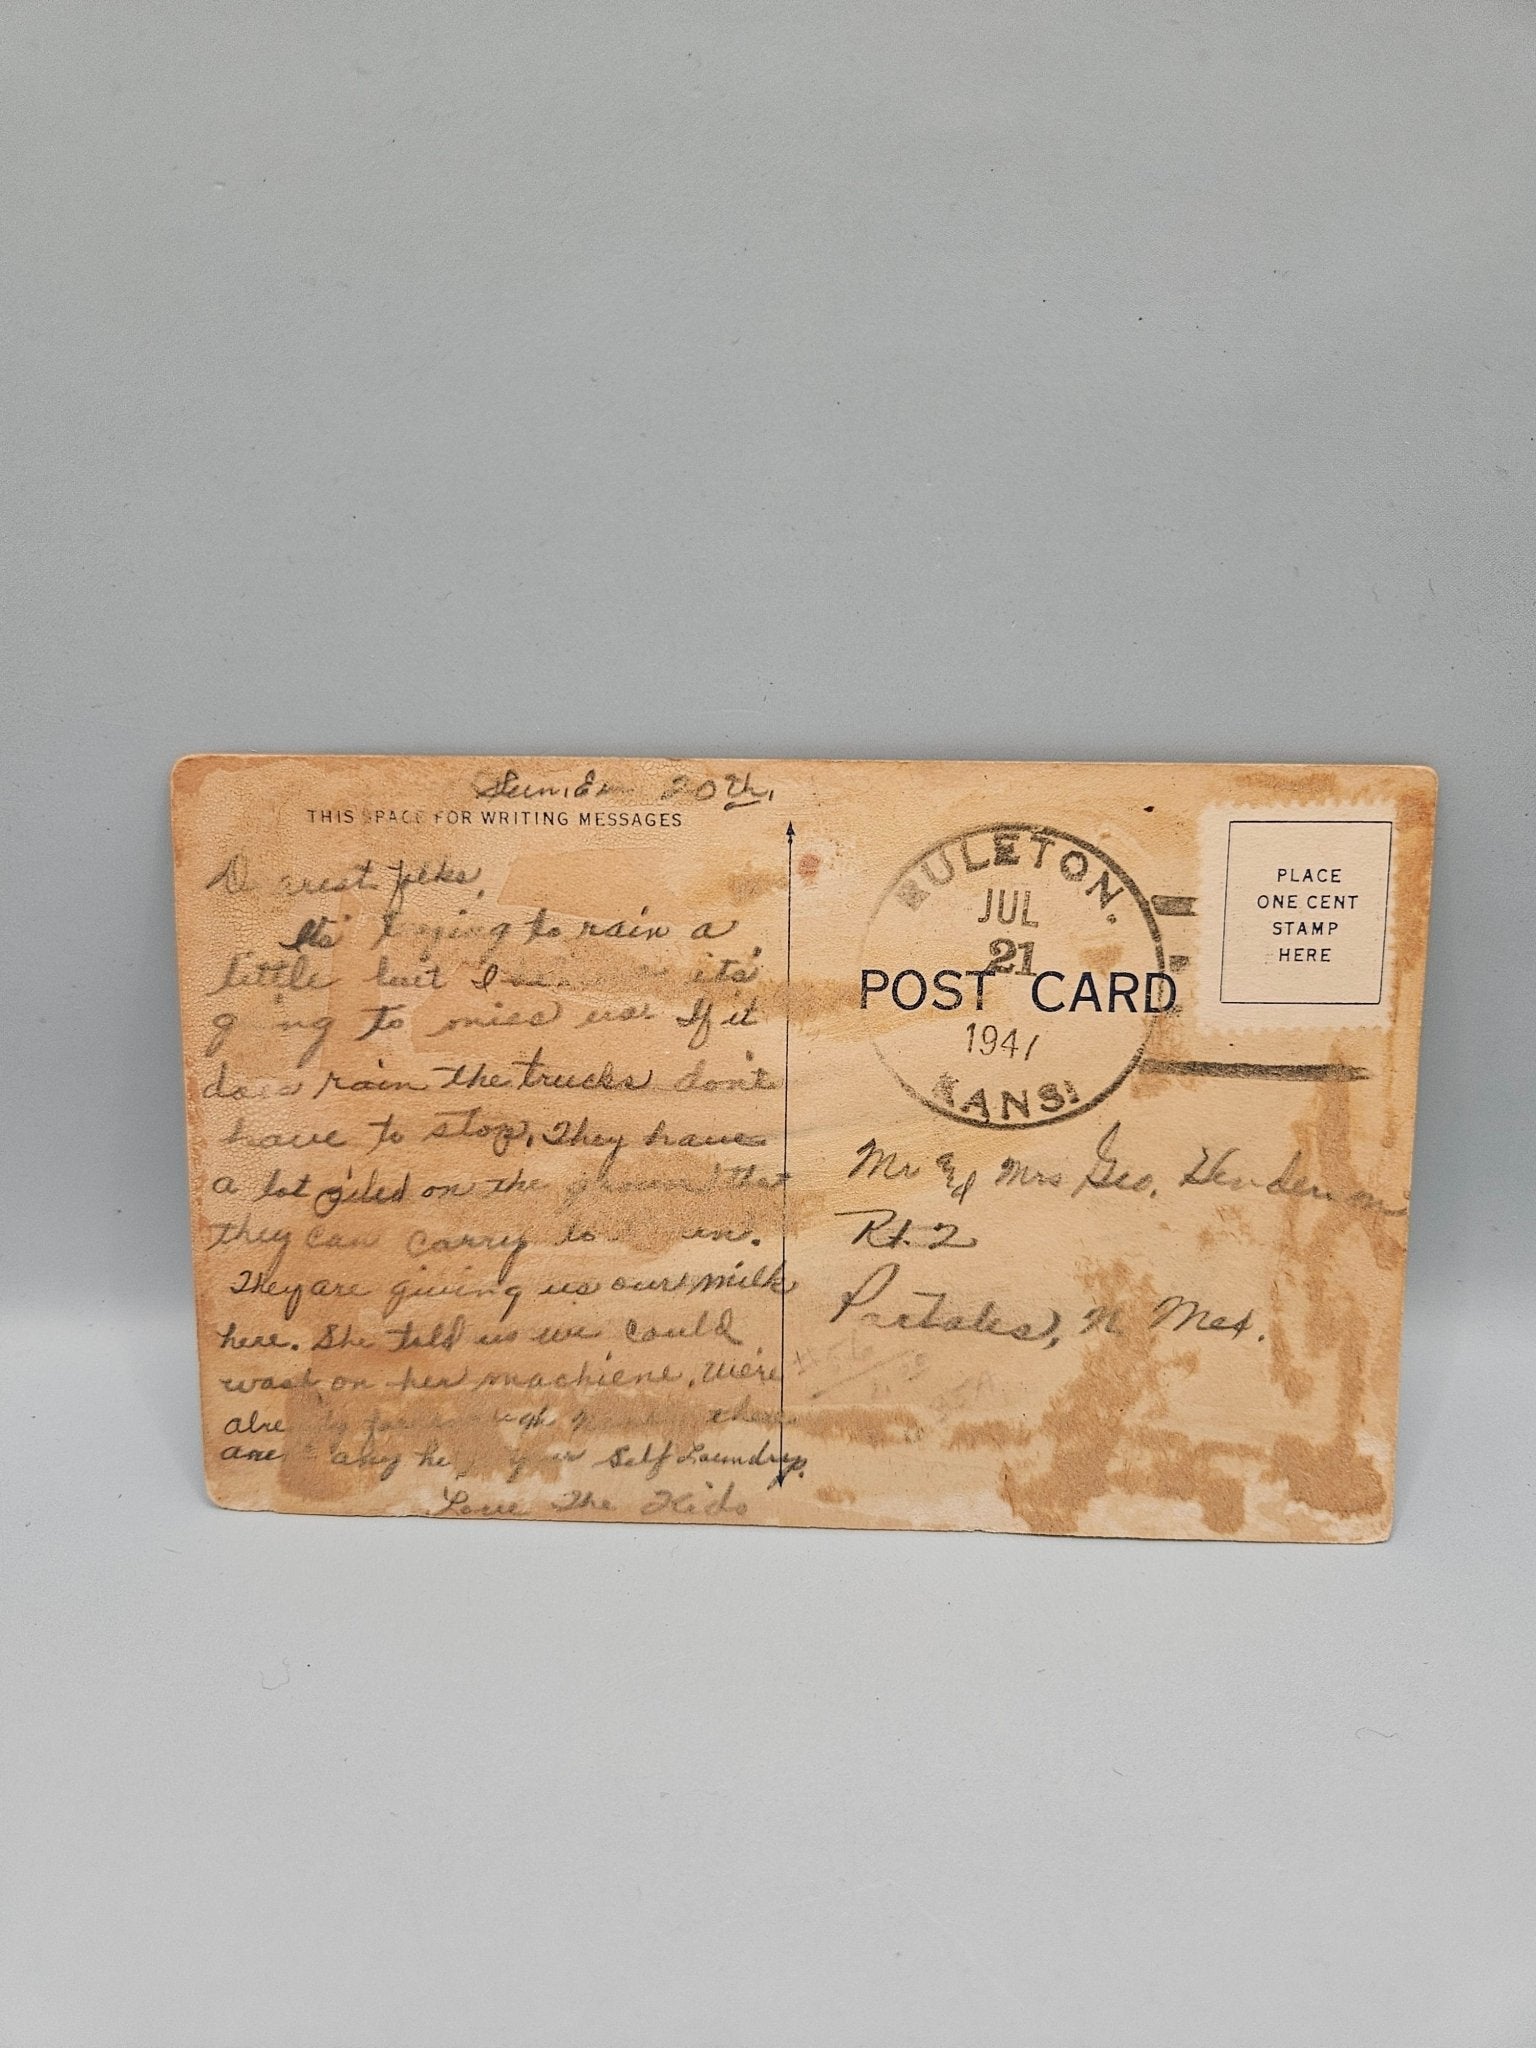 Sun. 20th.
THIS SPACE FOR WRITING MESSAGES
Dearest folks,
It's trying to rain a
little but I it's
going to miss us. If it
does rain the trucks don't
have to stop. They have
a lot piled on the ground that
they can carry to
They are giving us our milk
here. She told us we could
wash on her machiene. We're
already
any Self Laundry.
Love The Kids
RULETON.
JUL
21
1947
KANS.
POST CARD
PLACE
ONE CENT
STAMP
HERE
Mr & Mrs Geo. Henderson
Rt. 2
Portales, N Mex.